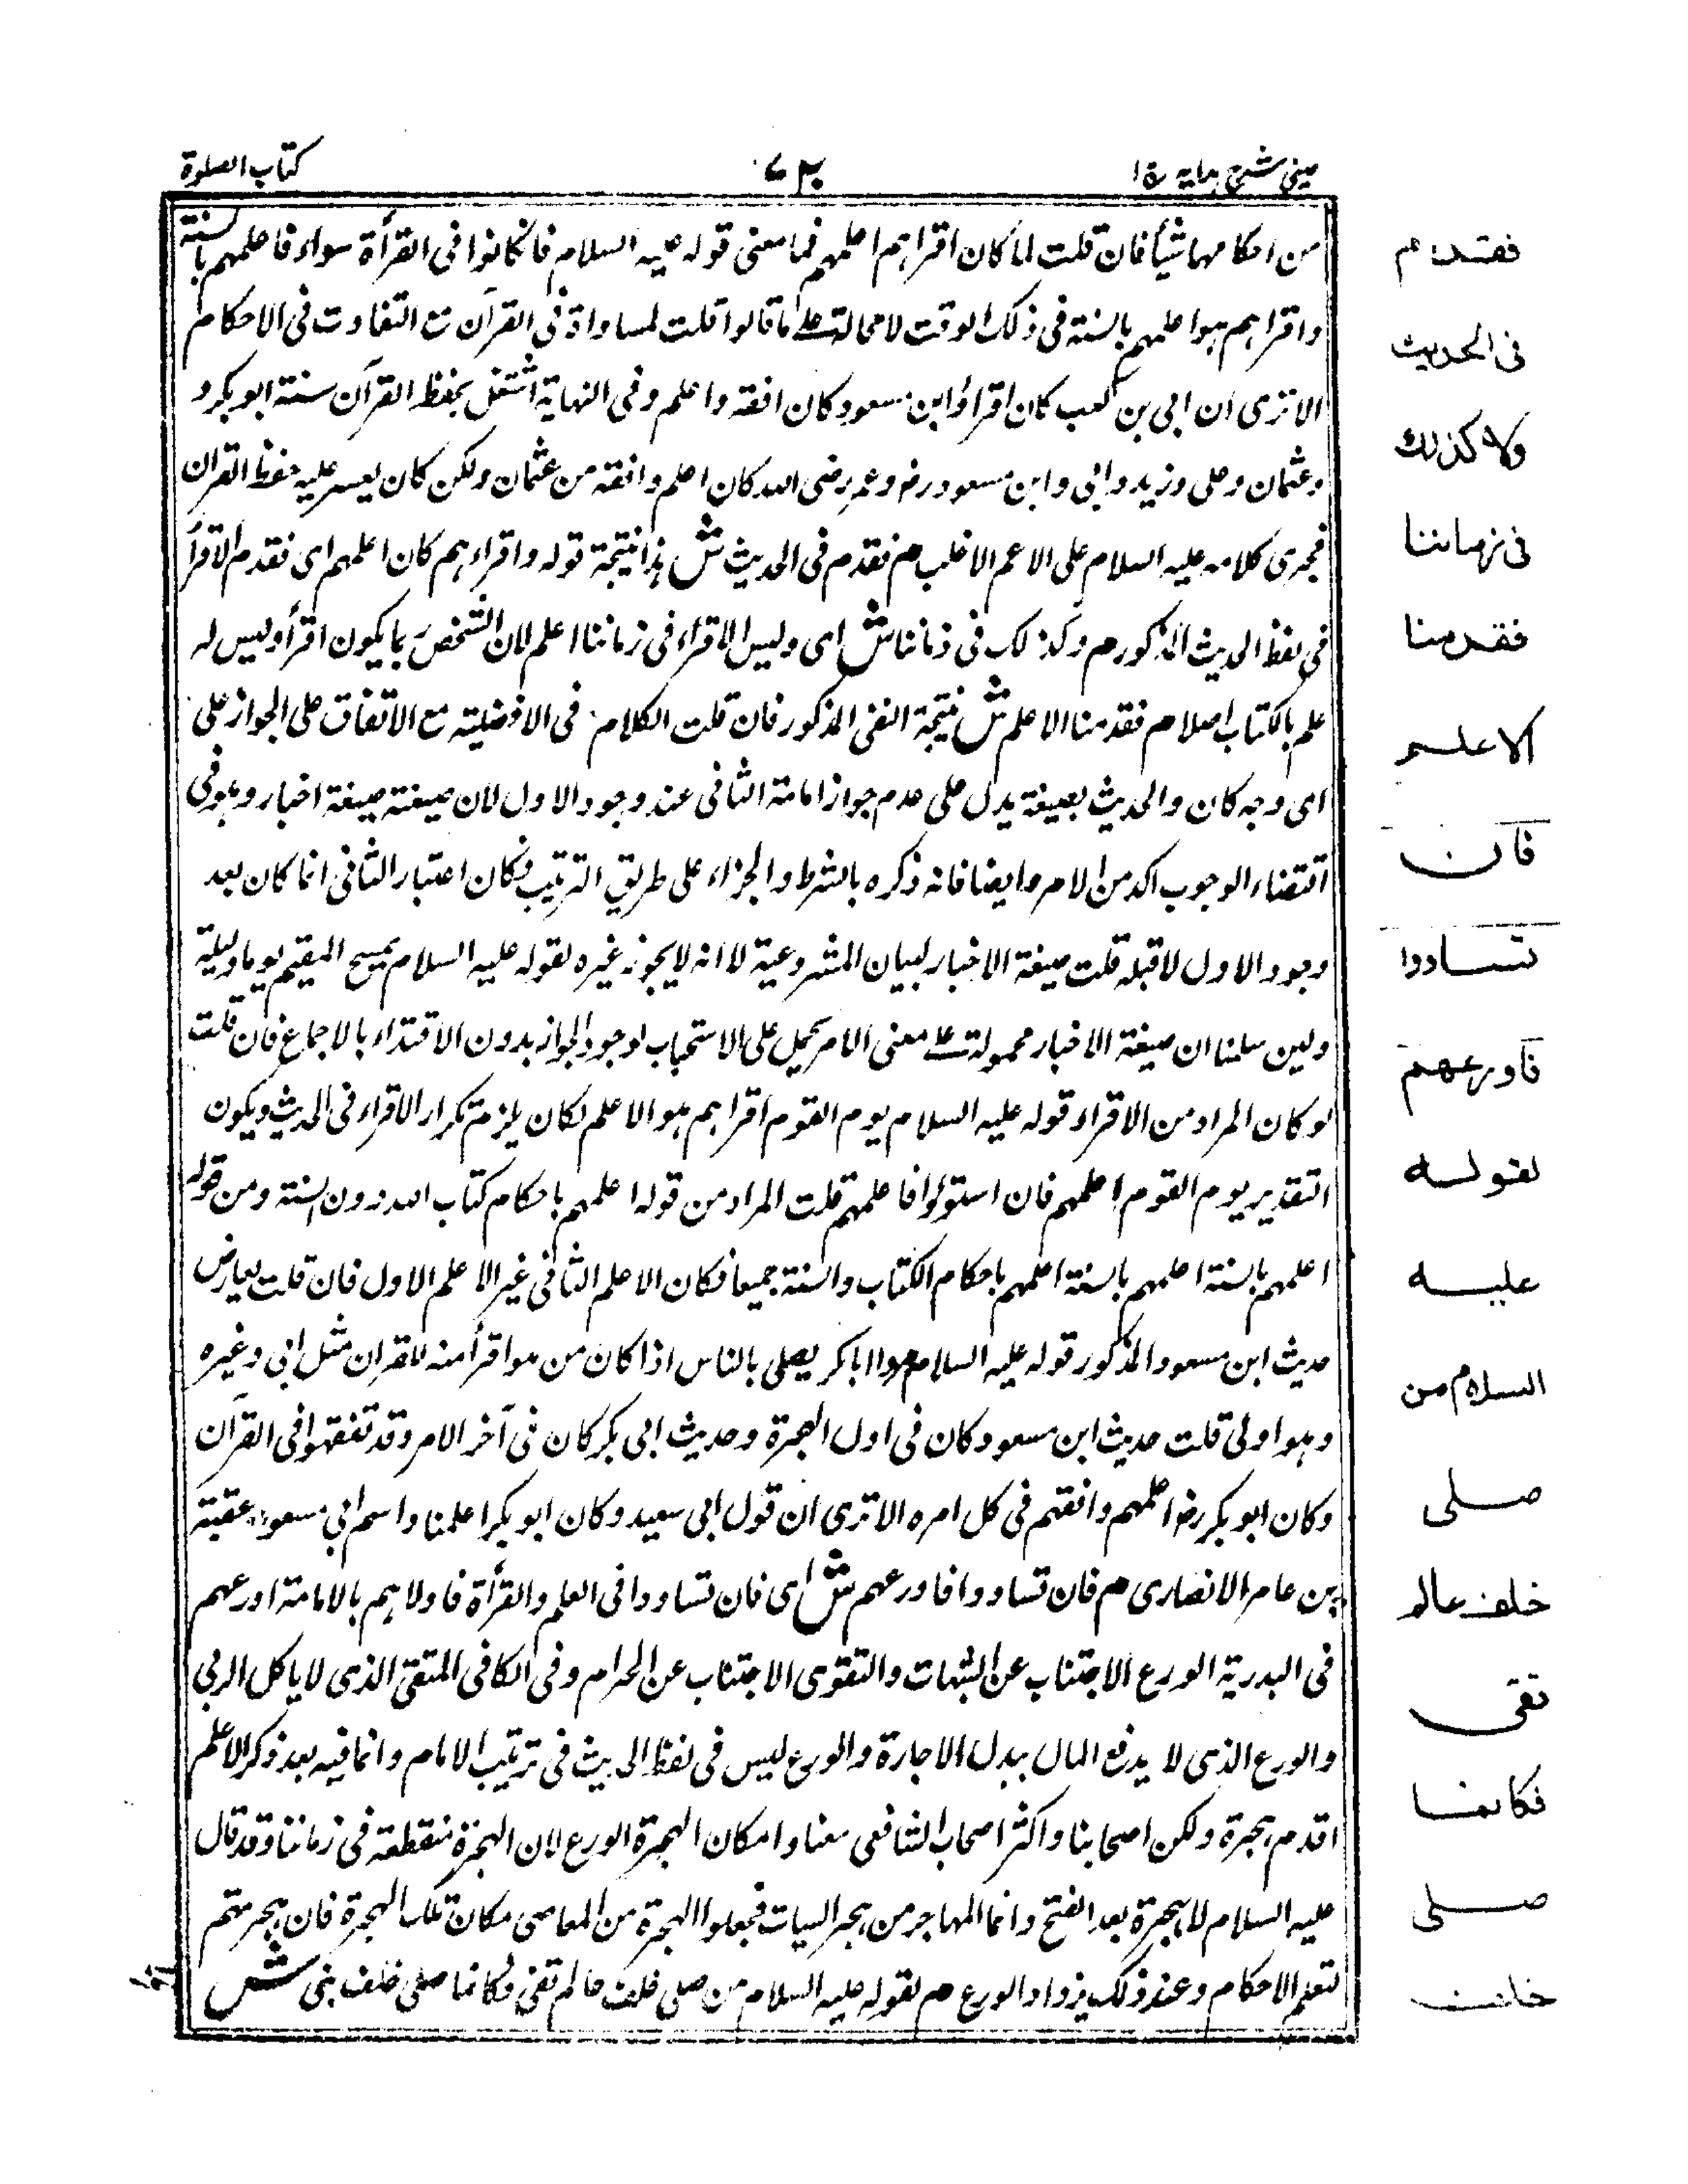 عینی شرح ہدایہ ج ١
٧٣٠
کتاب الصلوة
من احکامہا شیأ فان قلت لما کان اقراہم اعلمہم فما معنی قولہ علیہ السلام فان کانوا فی القرأة سواء فاعلمہم بالسنة
واقراہم ہو اعلمہم بالسنة فی ذلک الوقت لامحالة علی ما قالوا قلت لمساواة فی القرآن مع التفاوت فی الاحکام
الا تری ان ابی بن کعب کان اقرأ وابن مسعود کان افقہ واعلم وفی النہایة اشتغل بحفظ القرآن ستة ابو بکر و
وعثمان وعلی وزید وابی وابن مسعود رض وعمر رضی اللہ کان اعلم وافقہ من عثمان ولکن کان یعسر علیہ حفظ القران
فجری کلامہ علیہ السلام علی الاعم الاغلب م فقدم فی الحدیث ش ہذا نتیجة قولہ واقراءہم کان اعلمہم ای فقدم الاقرأ
فی لفظ الحدیث المذکور م وکذلک فی زماننا ش ای ولیس الاقراء فی زماننا اعلم لان الشخص ربما یکون اقرأ ولیس لہ
علم بالکتاب اصلا م فقدمنا الاعلم ش نتیجة النفی المذکور فان قلت الکلام فی الافضلیة مع الاتفاق علی الجواز علی
ای وجہ کان والحدیث بصیغة یدل علی عدم جواز امامة الثانی عند وجود الاول لان صیغتہ صیغة اخبار وہو فی
اقتضاء الوجوب اکد من الامر وایضا فانہ ذکرہ بالشرط والجزاء علی طریق الترتیب فکان اعتبار الثانی انما کان بعد
وجود الاول لا قبلہ قلت صیغة الاخبار لبیان المشروعیة لا انہ لا یجوز غیرہ لقولہ علیہ السلام یمسح المقیم یوما ولیلة
ولین سلمنا ان صیغة الاخبار محمولة علی معنی الامر یحمل علی الاستحباب لوجود الجواز بدون الاقتداء بالاجماع فان قلت
لو کان المراد من الاقراء قولہ علیہ السلام یوم القوم اقراہم ہو الاعلم لکان یلزم تکرار الاقراء فی الحدیث ویکون
التقدیر یوم القوم اعلمہم فان استووا فاعلمہم قلت المراد من قولہ اعلمہم باحکام کتاب اللہ دون السنة ومن قولہ
اعلمہم بالسنة اعلمہم بالسنة اعلمہم باحکام الکتاب والسنة جمیعا فکان الاعلم الثانی غیر الاعلم الاول فان قلت یعارض
حدیث ابن مسعود المذکور قولہ علیہ السلام مروا ابا بکر یصلی بالناس اذا کان من ہو اقرأ منہ للقران مثل ابی وغیرہ
وہو اولی قلت حدیث ابن مسعود کان فی اول الہجرة وحدیث ابی بکر کان فی آخر الامر وقد تفقہوا فی القرآن
وکان ابو بکر رض اعلمہم وافقہم فی کل امرہ الا تری ان قول ابی سعید وکان ابو بکر اعلمنا واسم ابی مسعود عقبة
بن عامر الانصاری م فان تساووا فاورعہم ش ای فان تساووا فی العلم والقرأة فاولاہم بالامامة اورعہم
فی البدریة الورع الاجتناب عن الشبہات والتقوی الاجتناب عن الحرام وفی الکافی المتقی الذی لا یاکل الربی
والورع الذی لا یدفع المال ببدل الاجارة والورع لیس فی لفظ الحدیث فی ترتیب الامام وانما فیہ بعد ذکر الاعلم
اقدم ہجرة ولکن اصحابنا واکثر اصحاب الشافعی معنا وامکان الہجرة الورع لان الہجرة منقطعة فی زماننا وقد قال
علیہ السلام لا ہجرة بعد الفتح وانما المہاجر من ہجر السیات فجعلوا الہجرة من المعاصی مکان تلک الہجرة فان ہجرتہم
لتعلم الاحکام وعند ذلک یزداد الورع م لقولہ علیہ السلام من صلی خلف عالم تقی فکانما صلی خلف نبی ش
فقدم
فی الحدیث
ولا کذلک
فی زماننا
فقدمنا
الاعلم
فان
تساووا
فاورعهم
لقوله
علیه
السلام من
صلی
خلف عالم
تقی
فکانما
صلی
خلف